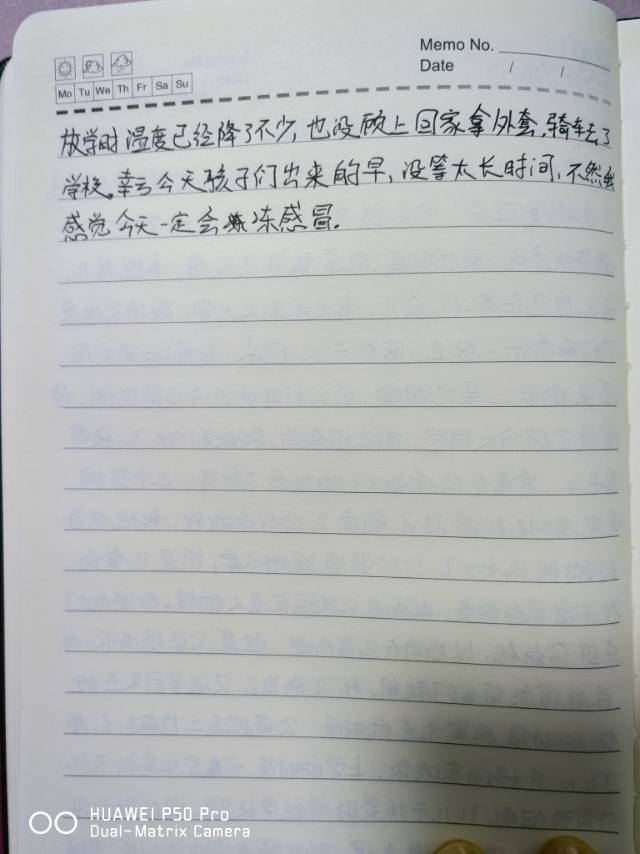 Memo No.
Date / /
Mo Tu We Th Fr Sa Su
放学时温度已经降了不少,也没顾上回家拿外套,骑车去了
学校。幸亏今天孩子们出来的早,没等太长时间,不然我
感觉今天一定会冻感冒.
HUAWEI P50 Pro
Dual-Matrix Camera